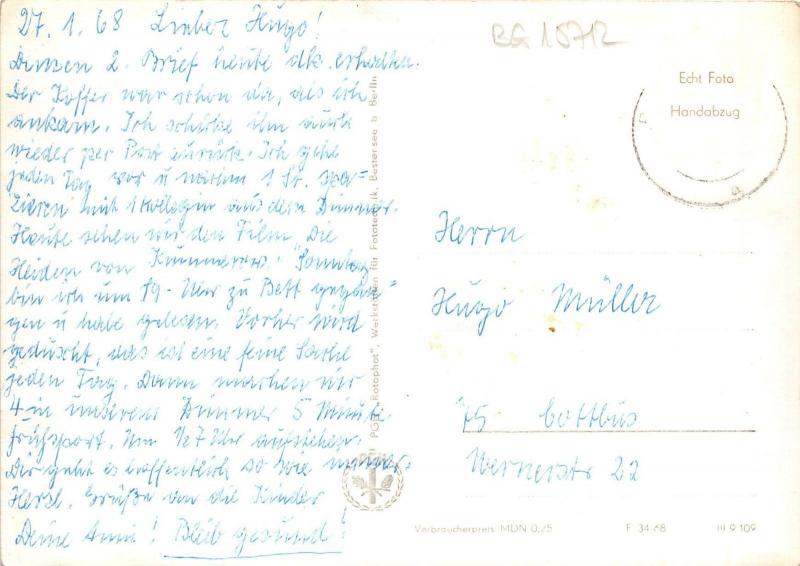 27.1.68 Lieber Hugo!
Deinen 2. Brief heute dk. erhalten.
Der Koffer war schon da, als ich
ankam. Ich schicke ihn auch
wieder per Post zurück. Ich gehe
jeden Tag vor u nachm 1 St. spa-
zieren mit 1 Kollegin aus dem Zimmer.
Heute sehen wir den Film "Die
Heiden von Kummerow." Sonntag
bin ich um 19- Uhr zu Bett gegan-
gen u habe gelesen. Vorher wird
geduscht, das ist eine feine Sache
jeden Tag. Dann machen wir
4 in unserem Zimmer 5 Minute
Frühsport. Um 1/2 7 Uhr aufstehen.
Dir geht es hoffentlich so wie immer.
Herzl. Grüße an die Kinder
Deine Anni! Bleib gesund!
PGH "Rotophot", Werkstätten für Fototechnik, Bestensee b. Berlin
BG 15712
Echt Foto
Handabzug
Herrn
Hugo Müller
75 Cottbus
Wernerstr 22
Verbraucherpreis MDN 0,25 F 34 68 III 9 109